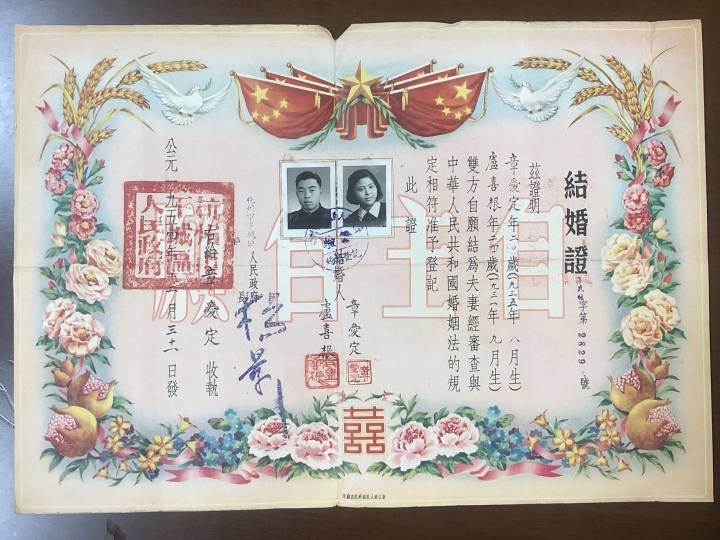 結婚證
字第2829號
茲證明
章愛定 年二歲(一九三五年八月生)
盧喜根 年歲(一九三一年九月生)
雙方自願結為夫妻經審查與
中華人民共和國婚姻法的規
定相符准予登記
此證
結婚人
章愛定
盧喜根
人民政府
右給章愛定收執
公元一九五四年十二月三十一日發
人民政府
自主自
囍